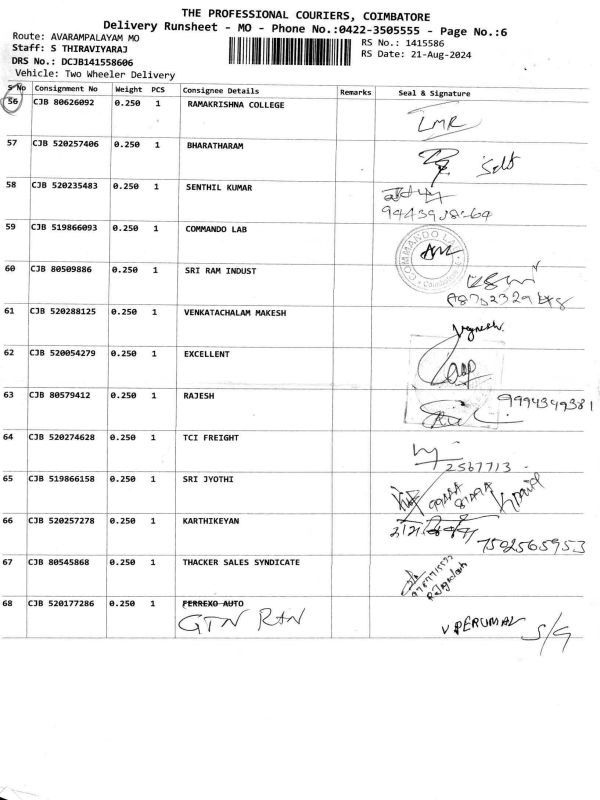 THE PROFESSIONAL COURIERS, COIMBATORE
Delivery Runsheet - MO - Phone No.:0422-3505555 - Page No.:6
Route: AVARAMPALAYAM MO RS No.: 1415586
Staff: S THIRAVIYARAJ RS Date: 21-Aug-2024
DRS No.: DCJB141558606
Vehicle: Two Wheeler Delivery
S No Consignment No Weight PCS Consignee Details Remarks Seal & Signature
56 CJB 80626092 0.250 1 RAMAKRISHNA COLLEGE LMR
57 CJB 520257406 0.250 1 BHARATHARAM
58 CJB 520235483 0.250 1 SENTHIL KUMAR
59 CJB 519866093 0.250 1 COMMANDO LAB
60 CJB 80509886 0.250 1 SRI RAM INDUST
61 CJB 520288125 0.250 1 VENKATACHALAM MAKESH
62 CJB 520054279 0.250 1 EXCELLENT
63 CJB 80579412 0.250 1 RAJESH 9994349381
64 CJB 520274628 0.250 1 TCI FREIGHT 2567713
65 CJB 519866158 0.250 1 SRI JYOTHI
66 CJB 520257278 0.250 1 KARTHIKEYAN 7502565953
67 CJB 80545868 0.250 1 THACKER SALES SYNDICATE
68 CJB 520177286 0.250 1 FERREXO AUTO
GTN RAN V PERUMAL S/G